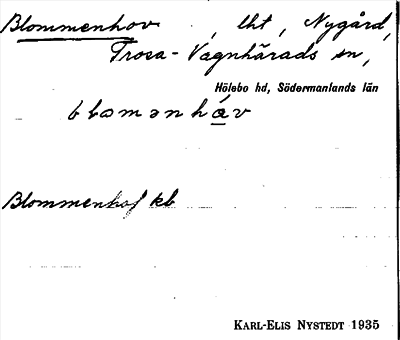 Blommenhov , lht , Nygård,
Trosa-Vagnhärads sn,
Hölebo hd, Södermanlands län
blomənháv
Blommenhof kb
KARL-ELIS NYSTEDT 1935